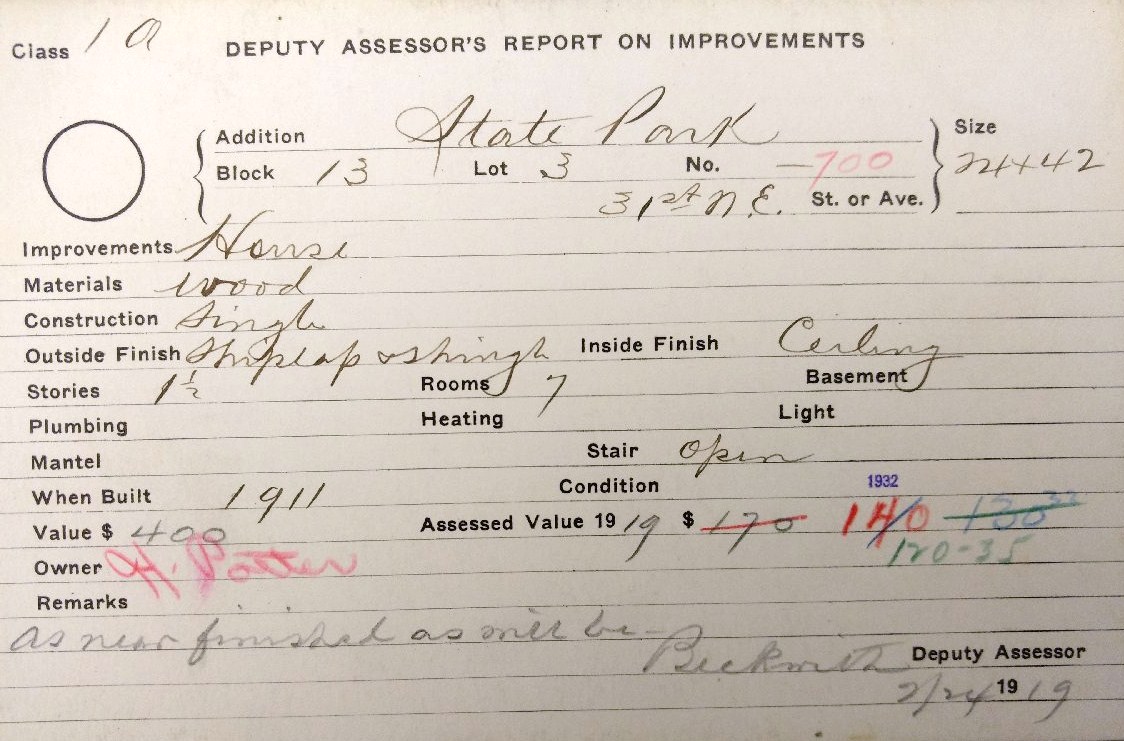 Class 1 a DEPUTY ASSESSOR'S REPORT ON IMPROVEMENTS
Addition State Park Size
Block 13 Lot 3 No. —700 24x42
31st N.E. St. or Ave.
Improvements House
Materials wood
Construction Single
Outside Finish Shiplap & Shingle Inside Finish Ceiling
Stories 1½ Rooms 7 Basement
Plumbing Heating Light
Mantel Stair open
When Built 1911 Condition 1932
Value $ 400 Assessed Value 1919 $ 170 140 130 32
120-35
Owner H. Potter
Remarks
as near finished as will be
Beckwith Deputy Assessor
2/24 1919